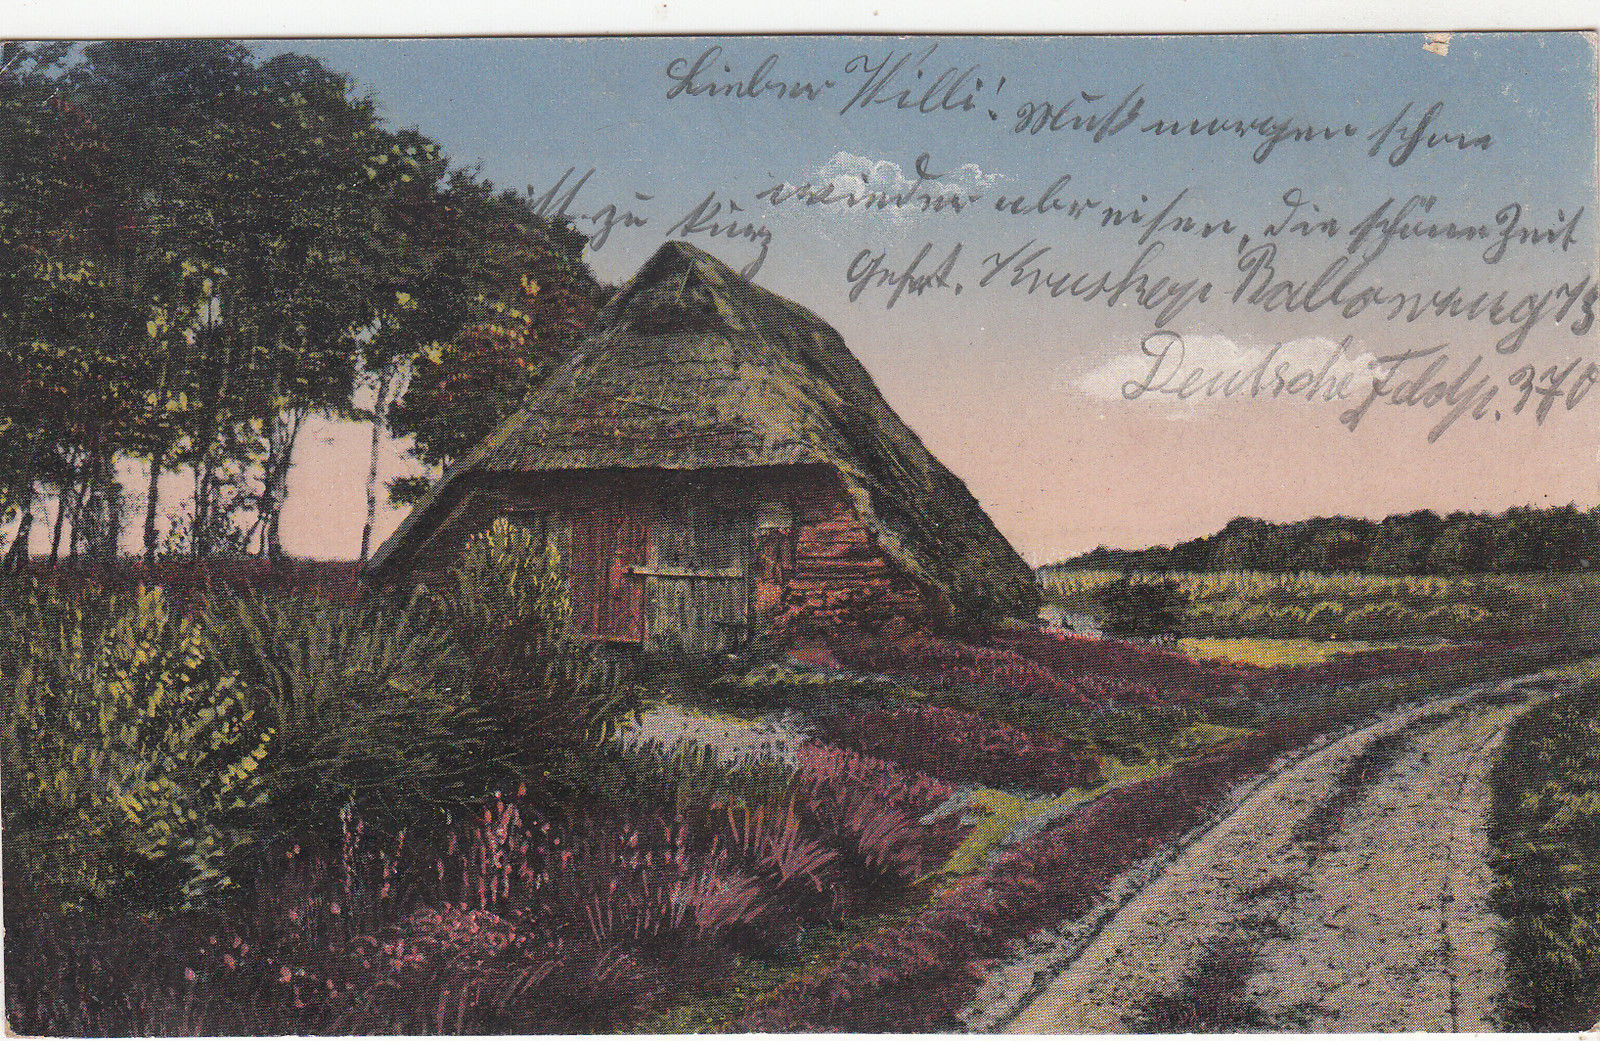 Lieber Willi!
Muß morgen schon
wieder abreisen, die schöne Zeit
ist zu kurz
Gefrt. Ballonzug 73
Deutsche Feldp. 370